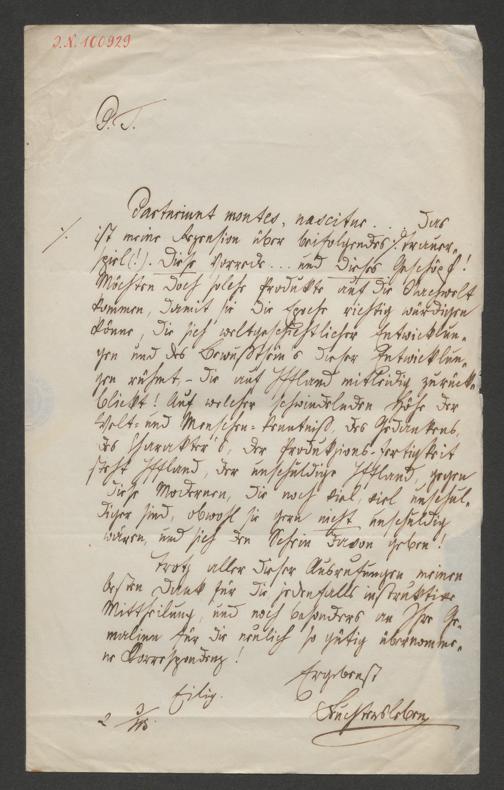 I.N. 160929
P. T.
Parturiunt montes, nascitur ... Das
ist meine Recension über beifolgendes Trauer-
spiel(!). Diese Vorrede ... und dieses Geschöpf!
Möchten doch solche Produkte auf die Nachwelt
kommen, damit sie die Epoche richtig würdigen
könne, die sich weltgeschichtlicher Entwicklun-
gen und des Bewußtseins dieser Entwicklun-
gen rühmt, – die auf Iffland mitleidig zurück-
blickt! Auf welcher schwindelnden Höhe der
Welt- und Menschen-Kenntniß, des Gedankens,
des Charakters, der Produktions-Fertigkeit
steht Iffland, der unschuldige Iffland, gegen
diese Modernen, die noch viel, viel unschul-
diger sind, obwohl sie gern nicht unschuldig
wären, und sich den Schein davon geben!
Trotz aller dieser Ausrufungen meinen
besten Dank für die jedenfalls instruktive
Mittheilung, und noch besonders an Ihre Ge-
malinn für die neulich so gütig übernomme-
ne Korrespondenz!
Ergebenst
Eilig.
Feuchtersleben
2